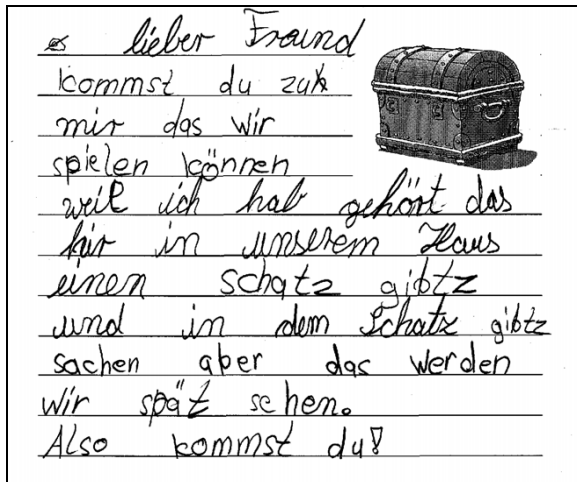 lieber Fraund
kommst du zu
mir das wir
spielen können
weil ich hab gehört das
hir in unserem Haus
einen schatz gibtz
und in dem Schatz gibtz
sachen aber das werden
wir spät sehen.
Also kommst du?